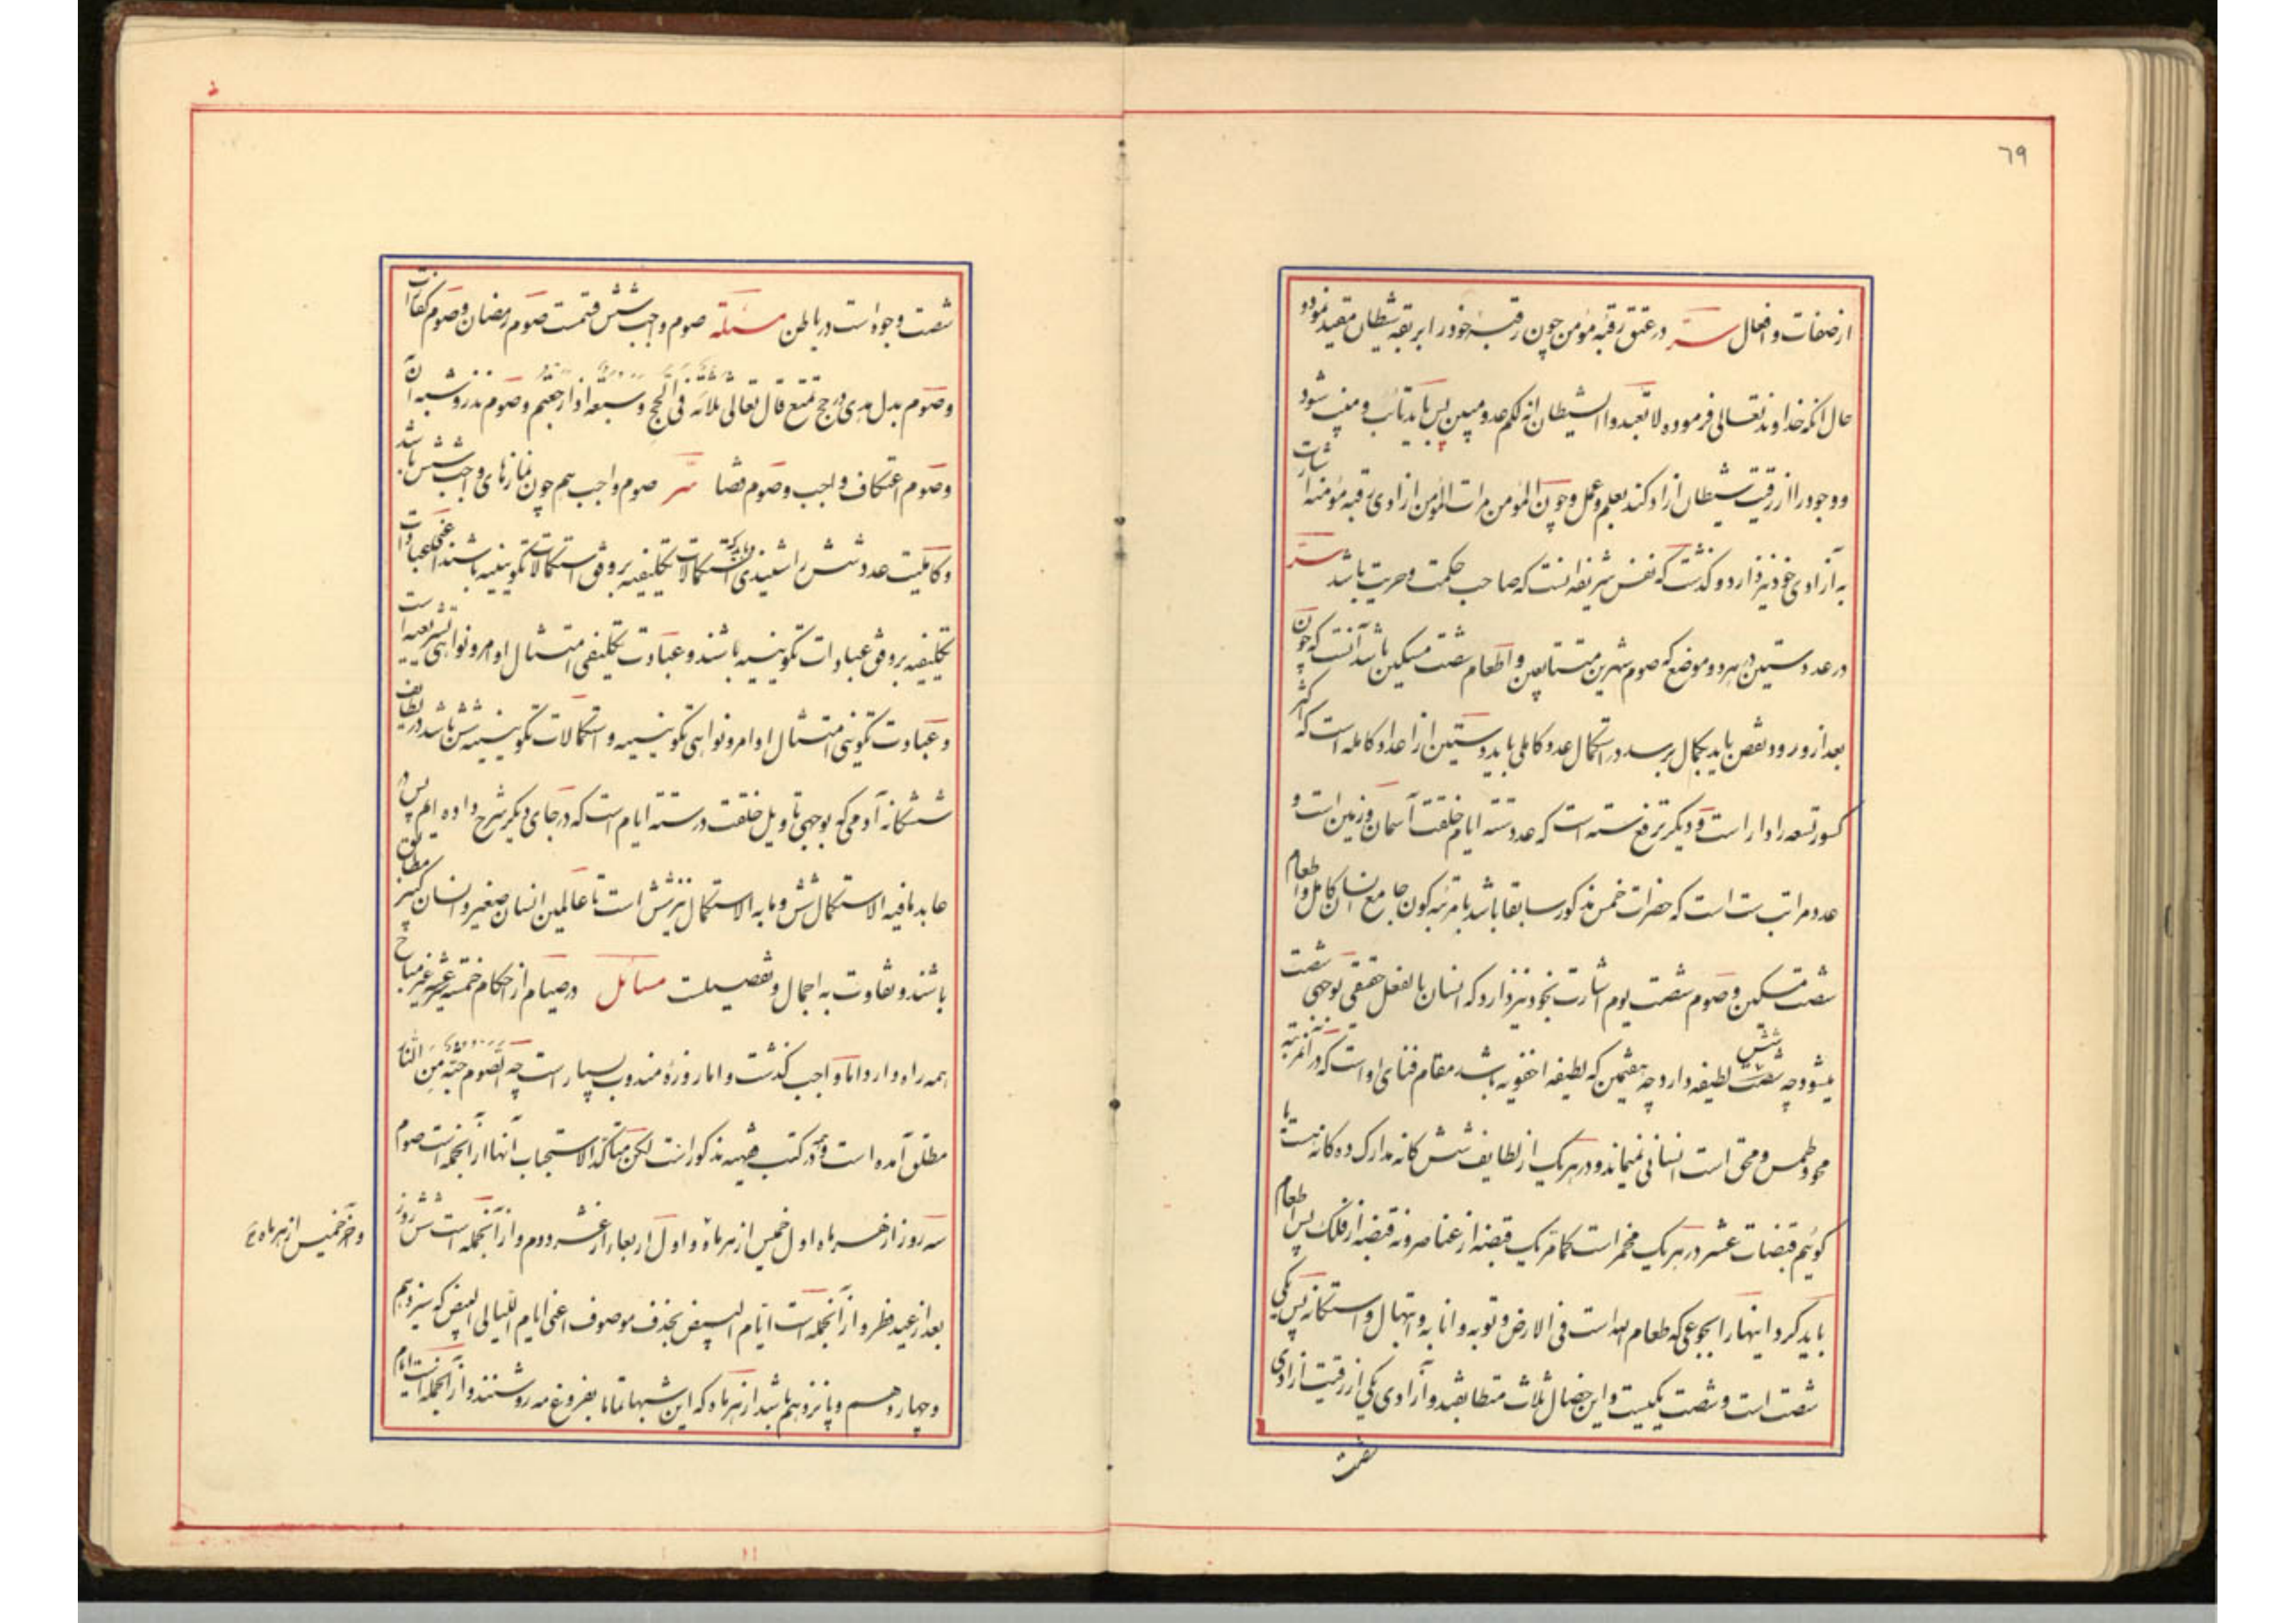 ٦٩
از صفات و افعال سرّ در عتق رقبهٔ مؤمن چون رقبهٔ خود را بربقهٔ شیطان مقید نموده
حال آنکه خداوند تعالی فرموده لا تعبدوا الشیطان انه لکم عدو مبین پس باید تائب و منیب شود
و وجود را از رقیت شیطان آزاد کند بعلم و عمل و چون المؤمن مرات المؤمن آزادی رقبه مؤمنه اشارت
به آزادی خود نیز دارد و گذشت که نفس شریفه آنست که صاحب حکمت و حریت باشد سرّ
در عدد ستین در هر دو موضع که صوم شهرین متتابعین و اطعام شصت مسکین باشد آنست که چون
بعد از ورود نقص باید بکمال برسد در استکمال عدد کاملی باید و ستین از اعداد کامله است که اکثر
کسور تسعه را دار است و دیگر ترفع سته است که عدد سته ایام خلقت آسمان و زمین است و
عدد مراتب ست است که حضرات خمس مذکور سابقا باشد با مرتبه کون جامع انسان کامل و اطعام
شصت مسکین و صوم شصت یوم اشارت بخود نیز دارد که انسان بالفعل حقیقی بوجهی شصت
میشود چه شصت شش لطیفه دارد چه هفتمین که لطیفه اخفویه باشد مقام فنای او است که در آنمرتبه
محو و طمس و محق است انسانی نمیماند و در هر یک از لطایف شش گانه مدارک ده گانه هست یا
گوئیم قبضات عشر در هر یک مخمر است کما مر یک قبضه از عناصر و نه قبضه از فلک پس اطعام
باید کرد اینها را بجوعی که طعام الله است فی الارض و توبه و انابه و ابتهال و استکانه پس یکی
شصت است و شصت یکیست و این خصال ثلاث متطابقند و آزادی یکی از رقیت آزادی
شصت
شصت وجود است در باطن مسئلة صوم واجب شش قسمت صوم رمضان و صوم کفارات
و صوم بدل هدی در حج تمتع قال تعالی ثلاثة فی الحج و سبعة اذا رجعتم و صوم نذر و شبه آن
و صوم اعتکاف واجب و صوم قضا سرّ صوم واجب هم چون نمازهای واجب شش باشد
و کاملیت عدد شش را شنیدی و باید که استکمالات تکلیفیه بر وفق استکمالات تکوینیه باشند اعنی عبادات
تکلیفیه بر وفق عبادات تکوینیه باشند و عبادت تکلیفی امتثال اوامر و نواهی تشریعیه است
و عبادت تکوینی امتثال اوامر و نواهی تکوینیه و استکمالات تکوینیه شش باشد در لطایف
ششگانه آدمی که بوجهی تاویل خلقت در ستة ایام است که در جای دیگر شرح داده ام پس در
عابد ما فیه الاستکمال شش و ما به الاستکمال نیز شش است تا عالمین انسان صغیر و انسان کبیر مطابق
باشند و تفاوت به اجمال و تفصیلست مسائل در صیام از احکام خمسه غیر مباح
همه را دارد اما واجب گذشت و اما روزهٔ مندوب بسیار است چه الصوم جنة من النار
مطلق آمده است و در کتب فقهیه مذکور است لکن متاکد الاستحباب آنها از آنجمله است صوم
سه روز از هر ماه اول خمیس از هر ماه و اول اربعاء از عشر دوم و از آنجمله است شش روز
و آخر خمیس از هر ماه
بعد از عید فطر و از آنجمله است ایّام البیض بحذف موصوف اعنی ایام اللیالی البیض که سیزدهم
و چهاردهم و پانزدهم باشد از هر ماه که این شبها تماما بفروغ مه روشنند و از آنجمله است ایام